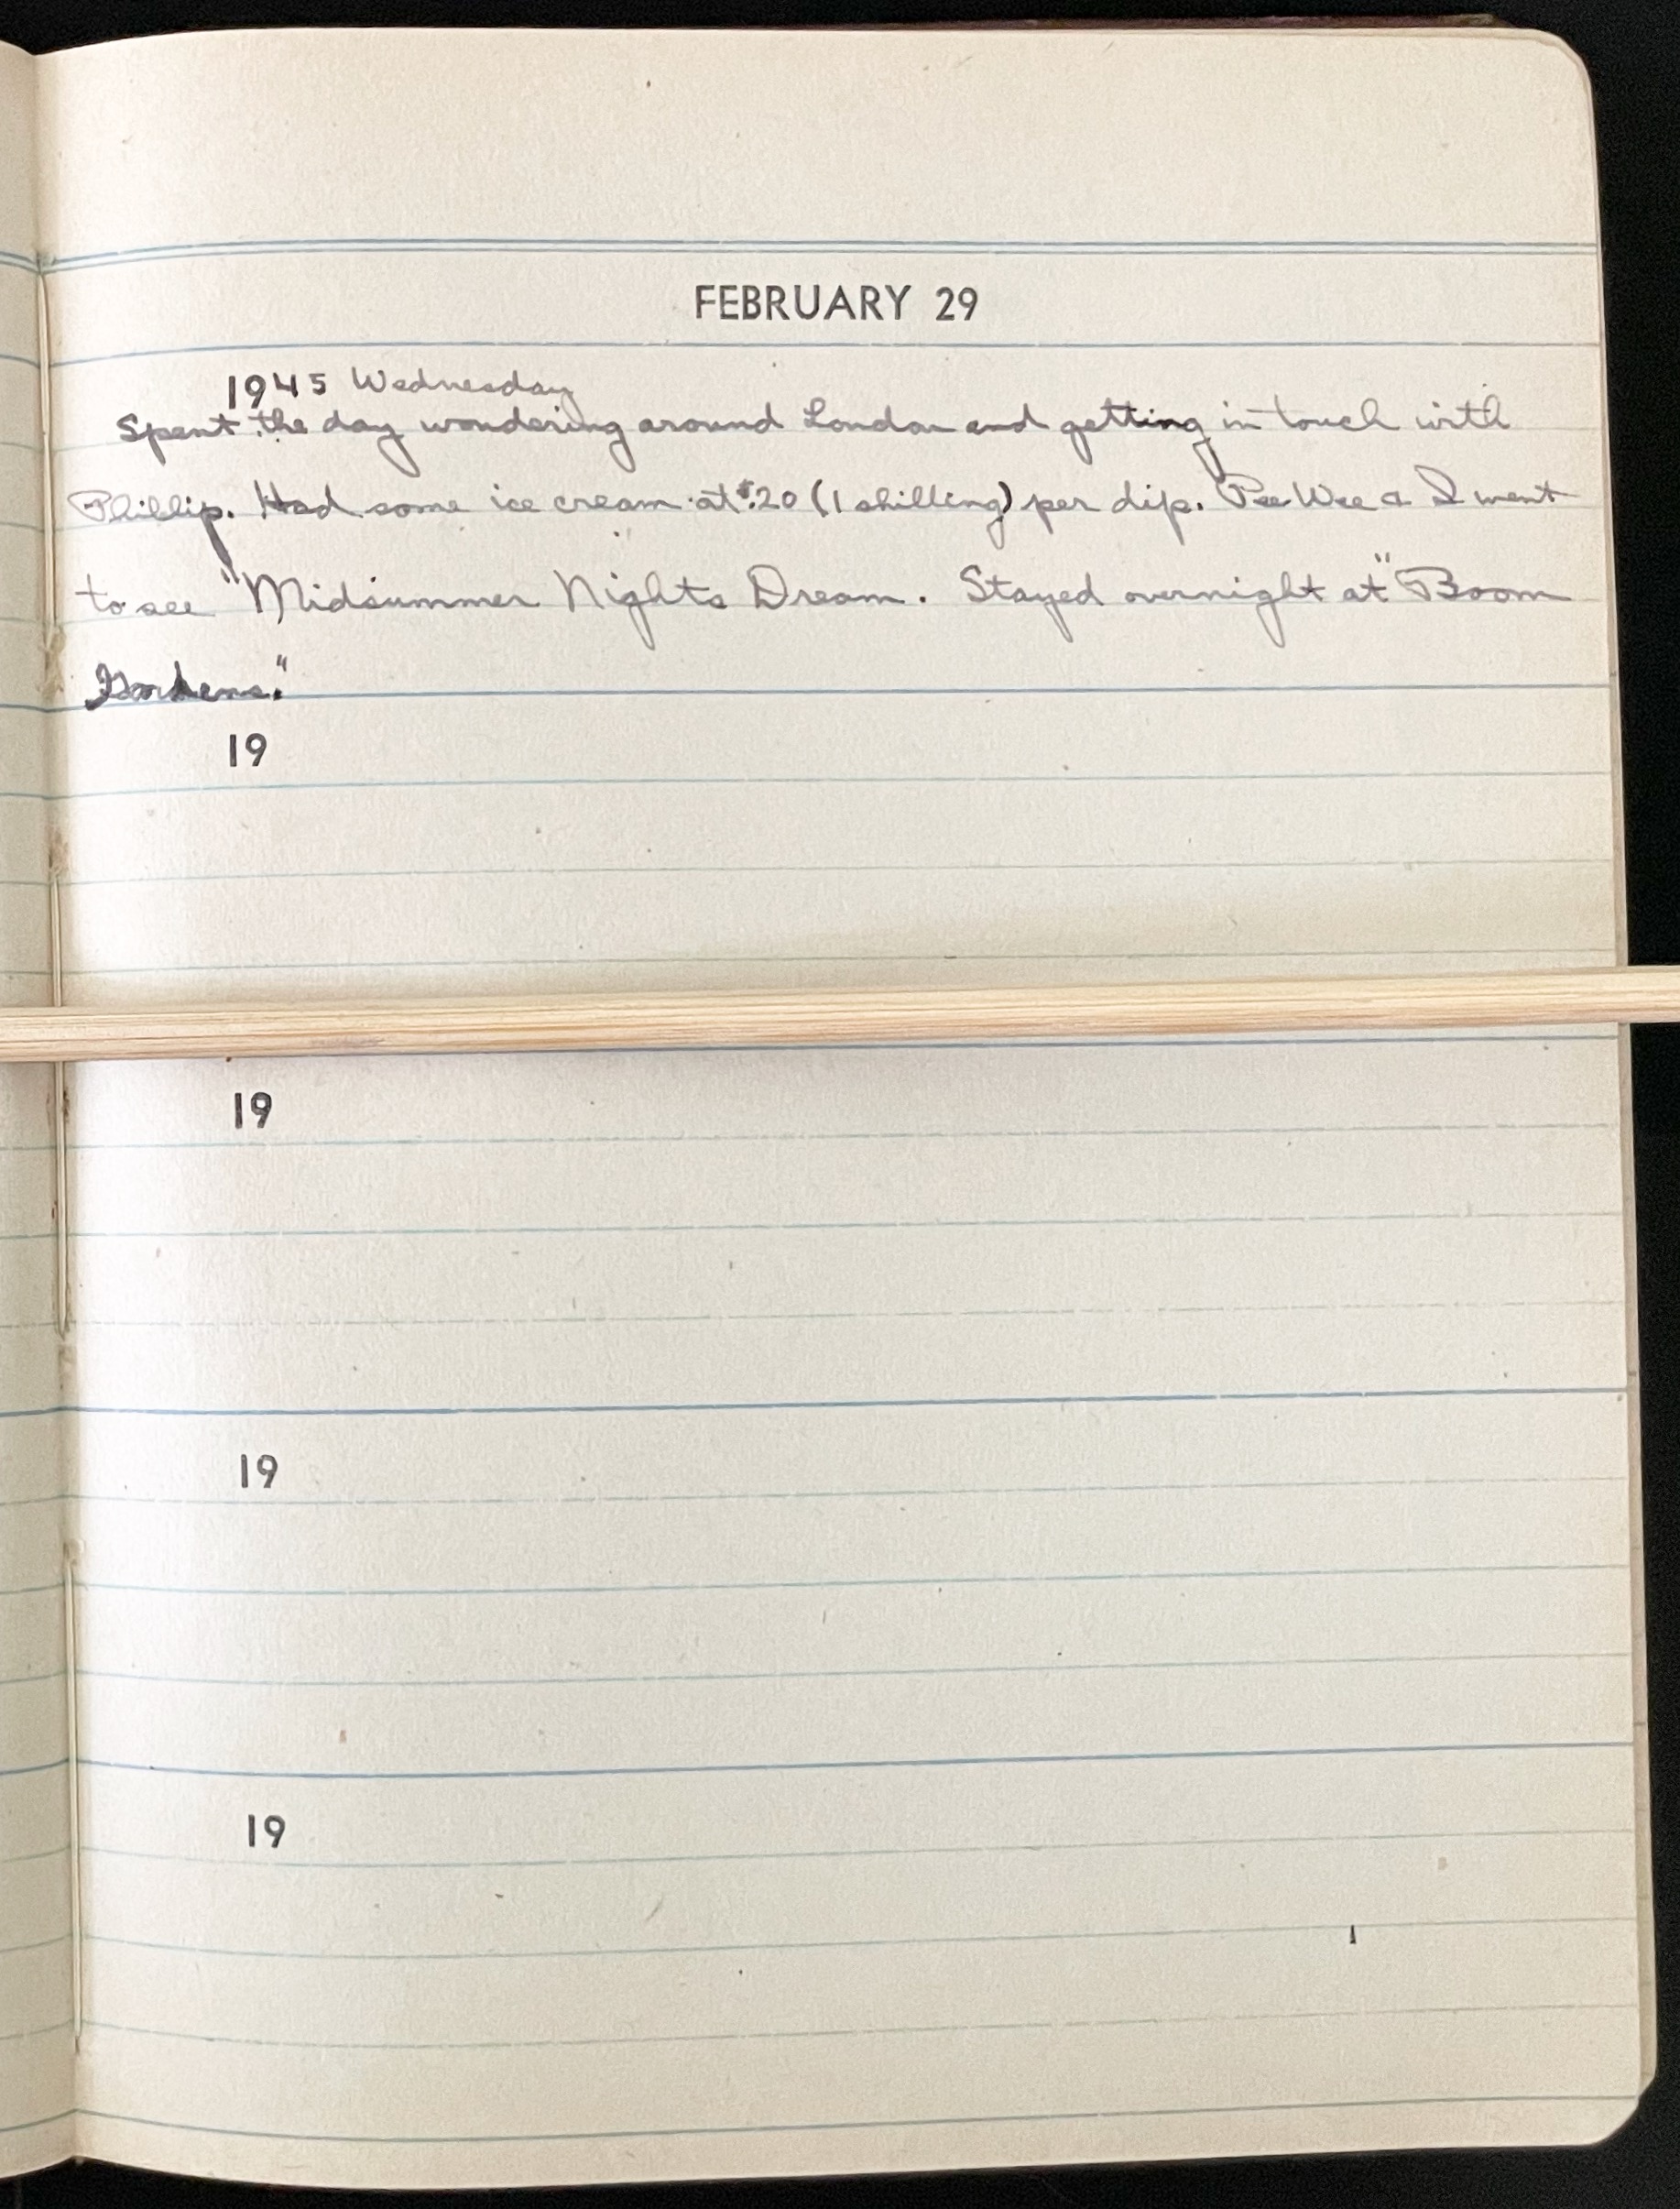 FEBRUARY 29
1945 Wednesday
Spent the day wondering around London and getting in touch with
Phillip. Had some ice cream at $.20 (1 shilling) per dip. Pee Wee & I went
to see "Midsummer Nights Dream. Stayed overnight at "Boom
Gardens."
19
19
19
19